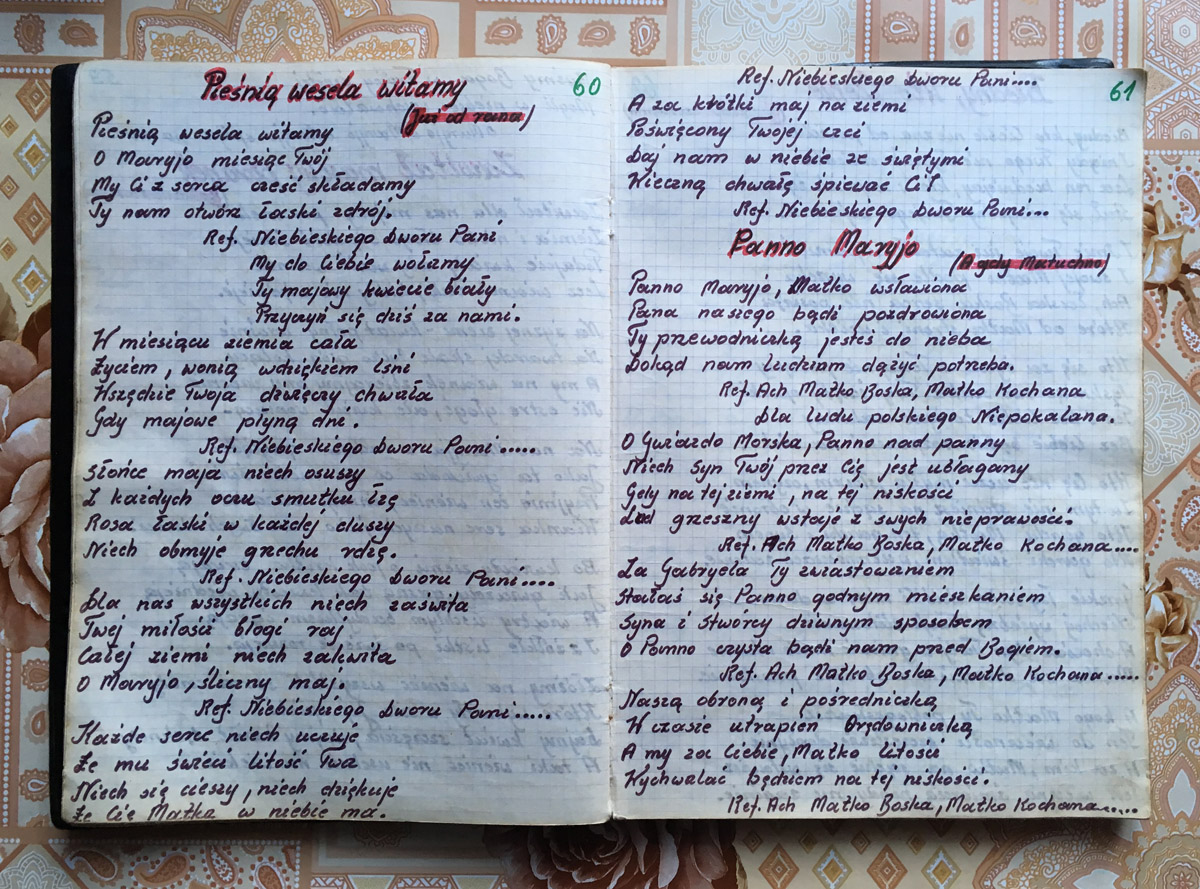 Pieśnią wesela witamy
60
(Już od rana)
Pieśnią wesela witamy
O Maryjo miesiąc Twój
My Ci z serca cześć składamy
Ty nam otwórz łaski zdrój.
Ref. Niebieskiego Dworu Pani
My do Ciebie wołamy
Ty majowy kwiecie biały
Przyczyń się dziś za nami.
W miesiącu ziemia cała
Życiem, wonią wdziękiem lśni
Wszędzie Twoja dźwięczy chwała
Gdy majowe płyną dni.
Ref. Niebieskiego Dworu Pani.....
Słońce maja niech osuszy
Z każdych oczu smutku łzę
Rosa łaski w każdej duszy
Niech obmyje grzechu rdzę.
Ref. Niebieskiego Dworu Pani....
Dla nas wszystkich niech zaświta
Twej miłości błogi raj
Całej ziemi niech zakwita
O Maryjo, śliczny maj.
Ref. Niebieskiego Dworu Pani.....
Każde serce niech uczuje
Że mu świeci litość Twa
Niech się cieszy, niech dziękuje
Że Cię Matką w niebie ma.
Ref. Niebieskiego Dworu Pani....
61
A za krótki maj na ziemi
Poświęcony Twojej czci
Daj nam w niebie ze świętymi
Wieczną chwałę śpiewać Ci!
Ref. Niebieskiego Dworu Pani...
Panno Maryjo
(A gdy Matuchno)
Panno Maryjo, Matko wsławiona
Pana naszego bądź pozdrowiona
Ty przewodniczką jesteś do nieba
Dokąd nam ludziom dążyć potrzeba.
Ref. Ach Matko Boska, Matko Kochana
Dla ludu polskiego Niepokalana.
O Gwiazdo Morska, Panno nad panny
Niech Syn Twój przez Cię jest ubłagany
Gdy na tej ziemi, na tej niskości
Lud grzeszny wstaje z swych nieprawości.
Ref. Ach Matko Boska, Matko Kochana....
Za Gabryela Ty zwiastowaniem
Stałaś się Panno godnym mieszkaniem
Syna i Stwórcy dziwnym sposobem
O Panno czysta bądź nam przed Bogiem.
Ref. Ach Matko Boska, Matko Kochana.....
Naszą obroną i pośredniczką
W czasie utrapień Orędowniczką
A my za Ciebie, Matko litości
Wychwalać będziem na tej niskości.
Ref. Ach Matko Boska, Matko Kochana.....